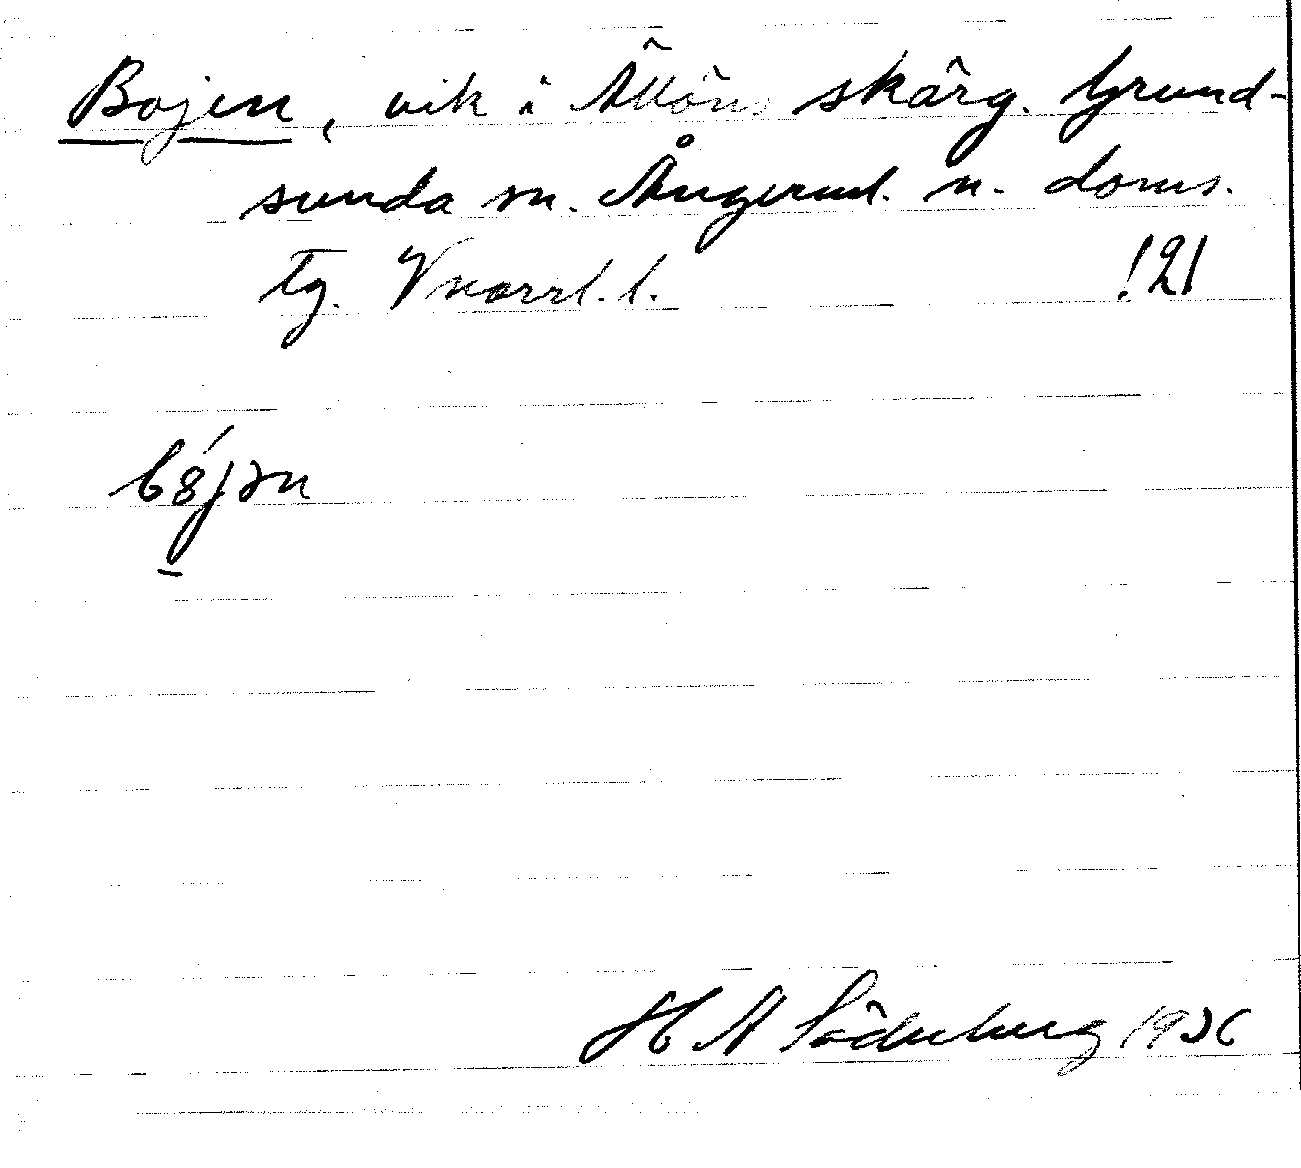 Bojen, vik i Ällöns skärg. Grund-
sunda sn. Ångerml. n. doms.
tg. Vnorrl. l. !21
bójən
H A Söderberg 1926